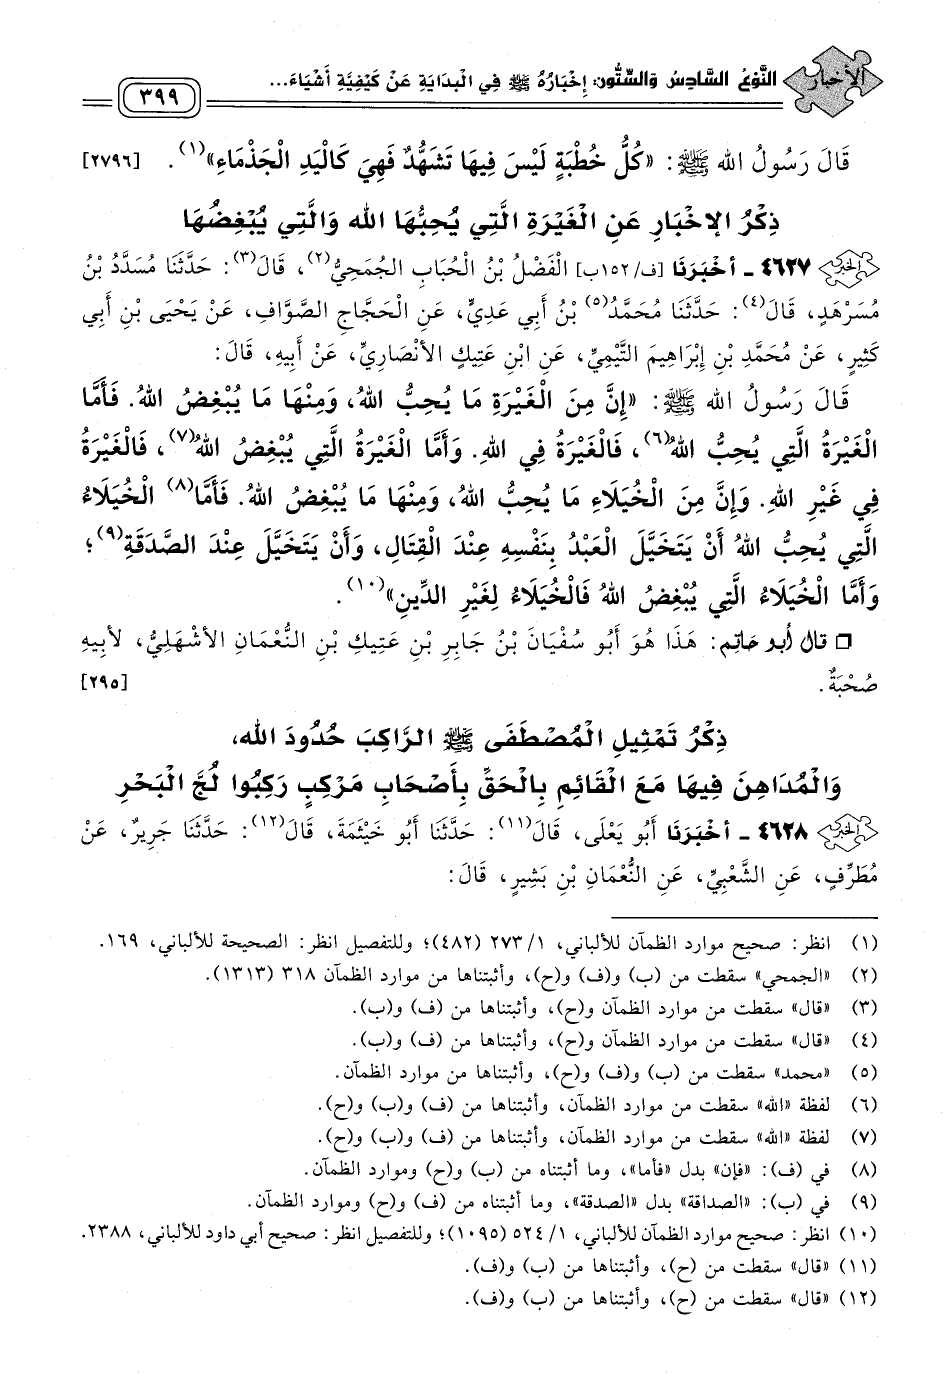 الأخبار
النَّوْعُ السَّادِسُ وَالسِّتُّونَ: إِخْبَارُهُ ﷺ فِي الْبَدَايَةِ عَنْ كَيْفِيَّةِ أَشْيَاءَ...
٣٩٩
قَالَ رَسُولُ اللهِ ﷺ: «كُلُّ خُطْبَةٍ لَيْسَ فِيهَا تَشَهُّدٌ فَهِيَ كَالْيَدِ الْجَذْمَاءِ»(١). [٢٧٩٦]
ذِكْرُ الإخْبَارِ عَنِ الْغَيْرَةِ الَّتِي يُحِبُّهَا الله وَالَّتِي يُبْغِضُهَا
٤٦٢٧ ـ أخْبَرَنَا [ف/١٥٢ب] الْفَضْلُ بْنُ الْحُبَابِ الجُمَحِيُّ(٢)، قَالَ(٣): حَدَّثَنَا مُسَدَّدُ بْنُ
مُسَرْهَدٍ، قَالَ(٤): حَدَّثَنَا مُحَمَّدُ(٥) بْنُ أَبِي عَدِيٍّ، عَنِ الْحَجَّاجِ الصَّوَّافِ، عَنْ يَحْيَى بْنِ أَبِي
كَثِيرٍ، عَنْ مُحَمَّدِ بْنِ إِبْرَاهِيمَ التَّيْمِيِّ، عَنِ ابْنِ عَتِيكٍ الأنْصَارِيِّ، عَنْ أَبِيهِ، قَالَ:
قَالَ رَسُولُ اللهِ ﷺ: «إِنَّ مِنَ الْغَيْرَةِ مَا يُحِبُّ اللهُ، وَمِنْهَا مَا يُبْغِضُ اللهُ. فَأَمَّا
الْغَيْرَةُ الَّتِي يُحِبُّ اللهُ(٦)، فَالْغَيْرَةُ فِي اللهِ. وَأَمَّا الْغَيْرَةُ الَّتِي يُبْغِضُ اللهُ(٧)، فَالْغَيْرَةُ
فِي غَيْرِ اللهِ. وَإِنَّ مِنَ الْخُيَلَاءِ مَا يُحِبُّ اللهُ، وَمِنْهَا مَا يُبْغِضُ اللهُ. فَأَمَّا(٨) الْخُيَلَاءُ
الَّتِي يُحِبُّ اللهُ أَنْ يَتَخَيَّلَ الْعَبْدُ بِنَفْسِهِ عِنْدَ الْقِتَالِ، وَأَنْ يَتَخَيَّلَ عِنْدَ الصَّدَقَةِ(٩)؛
وَأَمَّا الْخُيَلَاءُ الَّتِي يُبْغِضُ اللهُ فَالْخُيَلَاءُ لِغَيْرِ الدِّينِ»(١٠).
❑ قال أبو حاتم: هَذَا هُوَ أَبُو سُفْيَانَ بْنُ جَابِرِ بْنِ عَتِيكِ بْنِ النُّعْمَانِ الأشْهَلِيُّ، لأبِيهِ
صُحْبَةٌ. [٢٩٥]
ذِكْرُ تَمْثِيلِ الْمُصْطَفَى ﷺ الرَّاكِبَ حُدُودَ الله،
وَالْمُدَاهِنَ فِيهَا مَعَ الْقَائِمِ بِالْحَقِّ بِأَصْحَابِ مَرْكِبٍ رَكِبُوا لُجَّ الْبَحْرِ
٤٦٢٨ ـ أخْبَرَنَا أَبُو يَعْلَى، قَالَ(١١): حَدَّثَنَا أَبُو خَيْثَمَةَ، قَالَ(١٢): حَدَّثَنَا جَرِيرٌ، عَنْ
مُطَرِّفٍ، عَنِ الشَّعْبِيِّ، عَنِ النُّعْمَانِ بْنِ بَشِيرٍ، قَالَ:
(١) انظر: صحيح موارد الظمآن للألباني، ١/ ٢٧٣ (٤٨٢)؛ وللتفصيل انظر: الصحيحة للألباني، ١٦٩.
(٢) «الجمحي» سقطت من (ب) و(ف) و(ح)، وأثبتناها من موارد الظمآن ٣١٨ (١٣١٣).
(٣) «قال» سقطت من موارد الظمآن و(ح)، وأثبتناها من (ف) و(ب).
(٤) «قال» سقطت من موارد الظمآن و(ح)، وأثبتناها من (ف) و(ب).
(٥) «محمد» سقطت من (ب) و(ف) و(ح)، وأثبتناها من موارد الظمآن.
(٦) لفظة «الله» سقطت من موارد الظمآن، وأثبتناها من (ف) و(ب) و(ح).
(٧) لفظة «الله» سقطت من موارد الظمآن، وأثبتناها من (ف) و(ب) و(ح).
(٨) في (ف): «فإن» بدل «فأما»، وما أثبتناه من (ب) و(ح) وموارد الظمآن.
(٩) في (ب): «الصداقة» بدل «الصدقة»، وما أثبتناه من (ف) و(ح) وموارد الظمآن.
(١٠) انظر: صحيح موارد الظمآن للألباني، ١/ ٥٢٤ (١٠٩٥)؛ وللتفصيل انظر: صحيح أبي داود للألباني، ٢٣٨٨.
(١١) «قال» سقطت من (ح)، وأثبتناها من (ب) و(ف).
(١٢) «قال» سقطت من (ح)، وأثبتناها من (ب) و(ف).